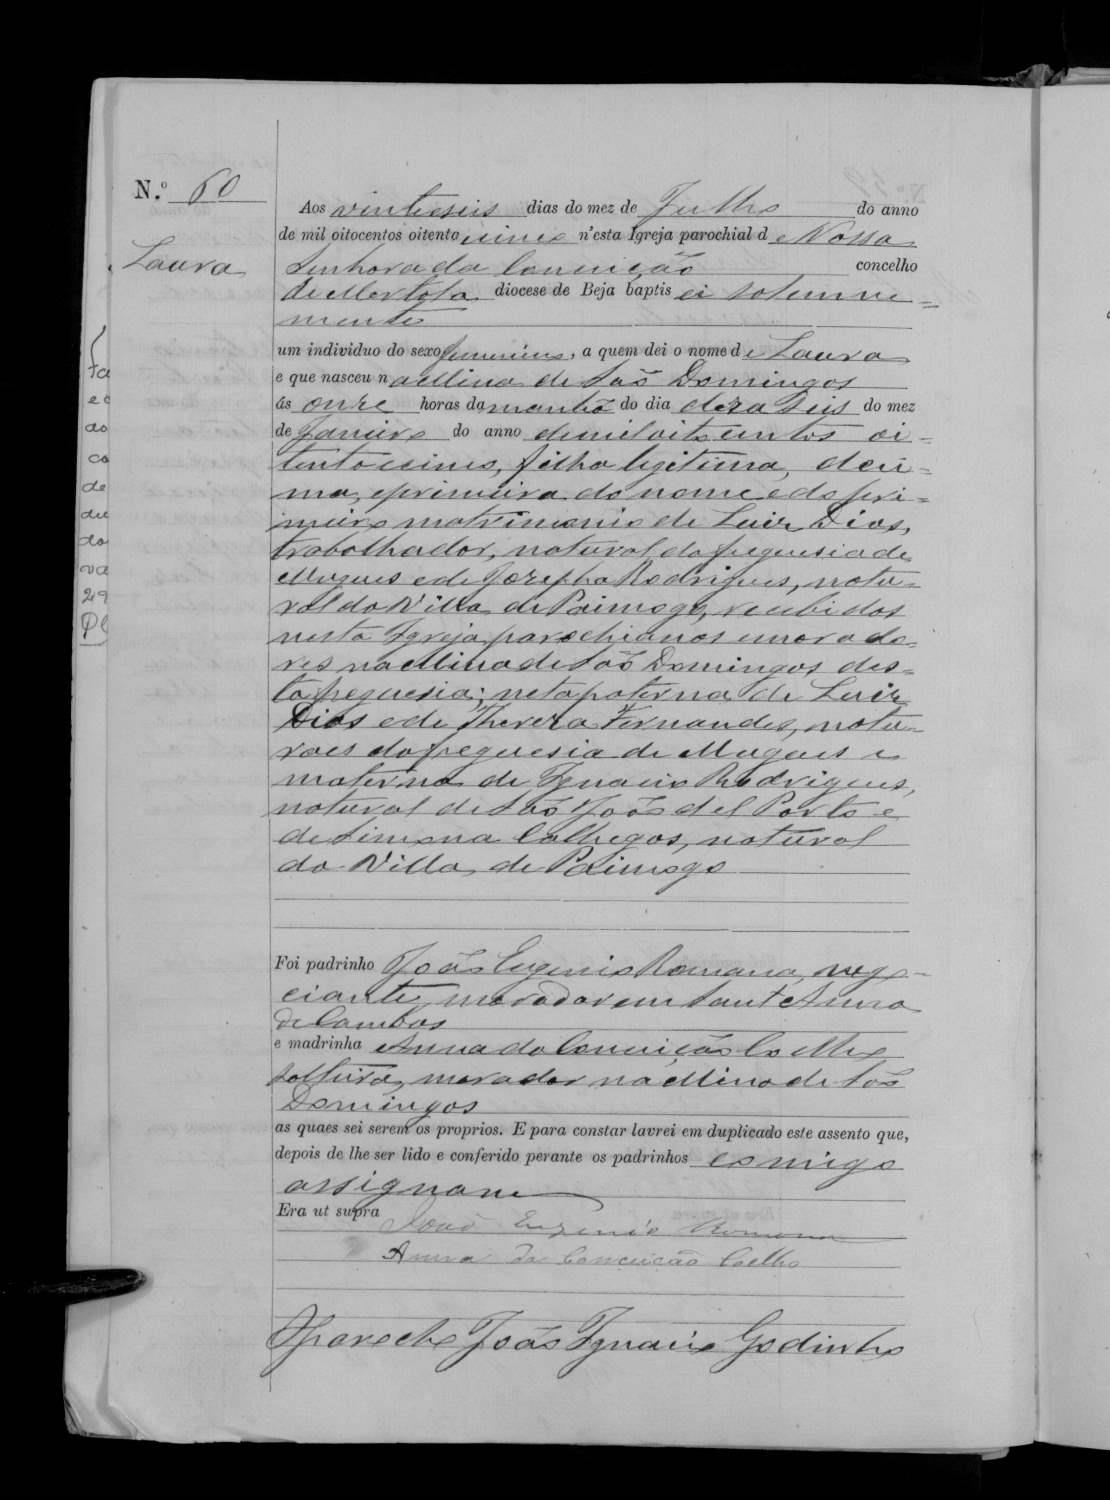 N.º 60
Laura
Aos vinte e seis dias do mez de Julho do anno
de mil oitocentos oitenta e cinco n'esta Igreja parochial de Nossa
Senhora da Conceição concelho
de Mertola diocese de Beja baptisei solemne=
mente
um individuo do sexo femenino, a quem dei o nome de Laura
e que nasceu na Mina de São Domingos
ás onze horas da manhã do dia dezaseis do mez
de Janeiro do anno de mil oito centos oi=
tenta e cinco, filha legitima, deci=
ma, e primeira do nome e do pri=
meiro matrimonio de Luiz Dias,
trabalhador, natural da freguesia de
Mugues e de Jozepha Rodrigues, natu=
ral da Villa de Paimogo, recebidos
nesta Igreja parochianos e morado=
res na Mina de São Domingos, des=
ta freguesia; neta paterna de Luiz
Dias e de Thereza Fernandes, natu=
raes da freguesia de Mugues e
materna de Ignacio Rodrigues,
natural de São João del Porto e
de Simona Calhegos, natural
da Villa de Paimogo
Foi padrinho João Eugenio Romana, nego=
ciante, morador em Sant'Anna
de Cambas
e madrinha Anna da Conceição Coelho
solteira, morador na Mina de São
Domingos
as quaes sei serem os proprios. E para constar lavrei em duplicado este assento que,
depois de lhe ser lido e conferido perante os padrinhos comigo
assignam
Era ut supra
João Eugenio Romana
Anna da Conceicão Coelho
O parocho João Ignacio Godinho